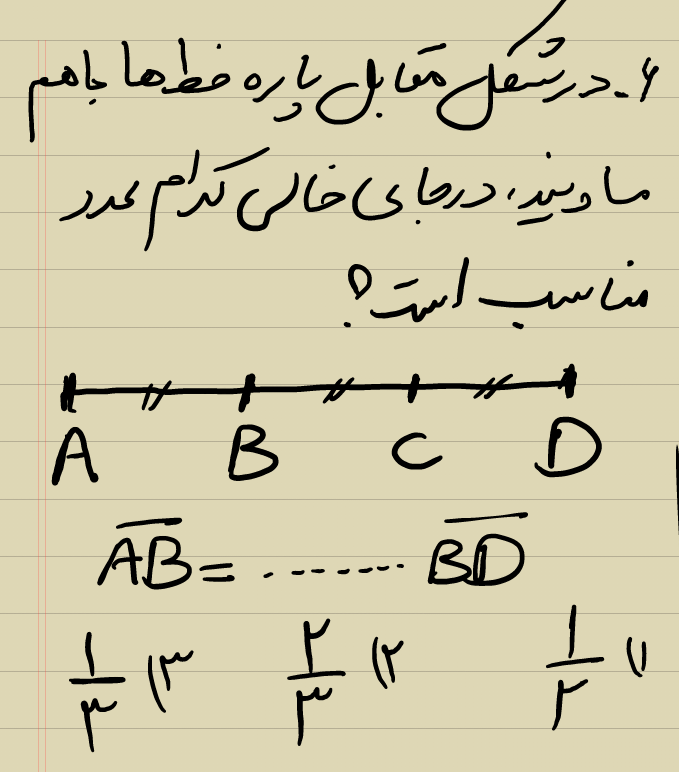 ۶- در شکل مقابل پاره خط‌ها باهم
مساویند، در جای خالی کدام عدد
مناسب است؟
A B C D
AB = ....... BD
۱) ۱/۲ ۲) ۲/۳ ۳) ۱/۳